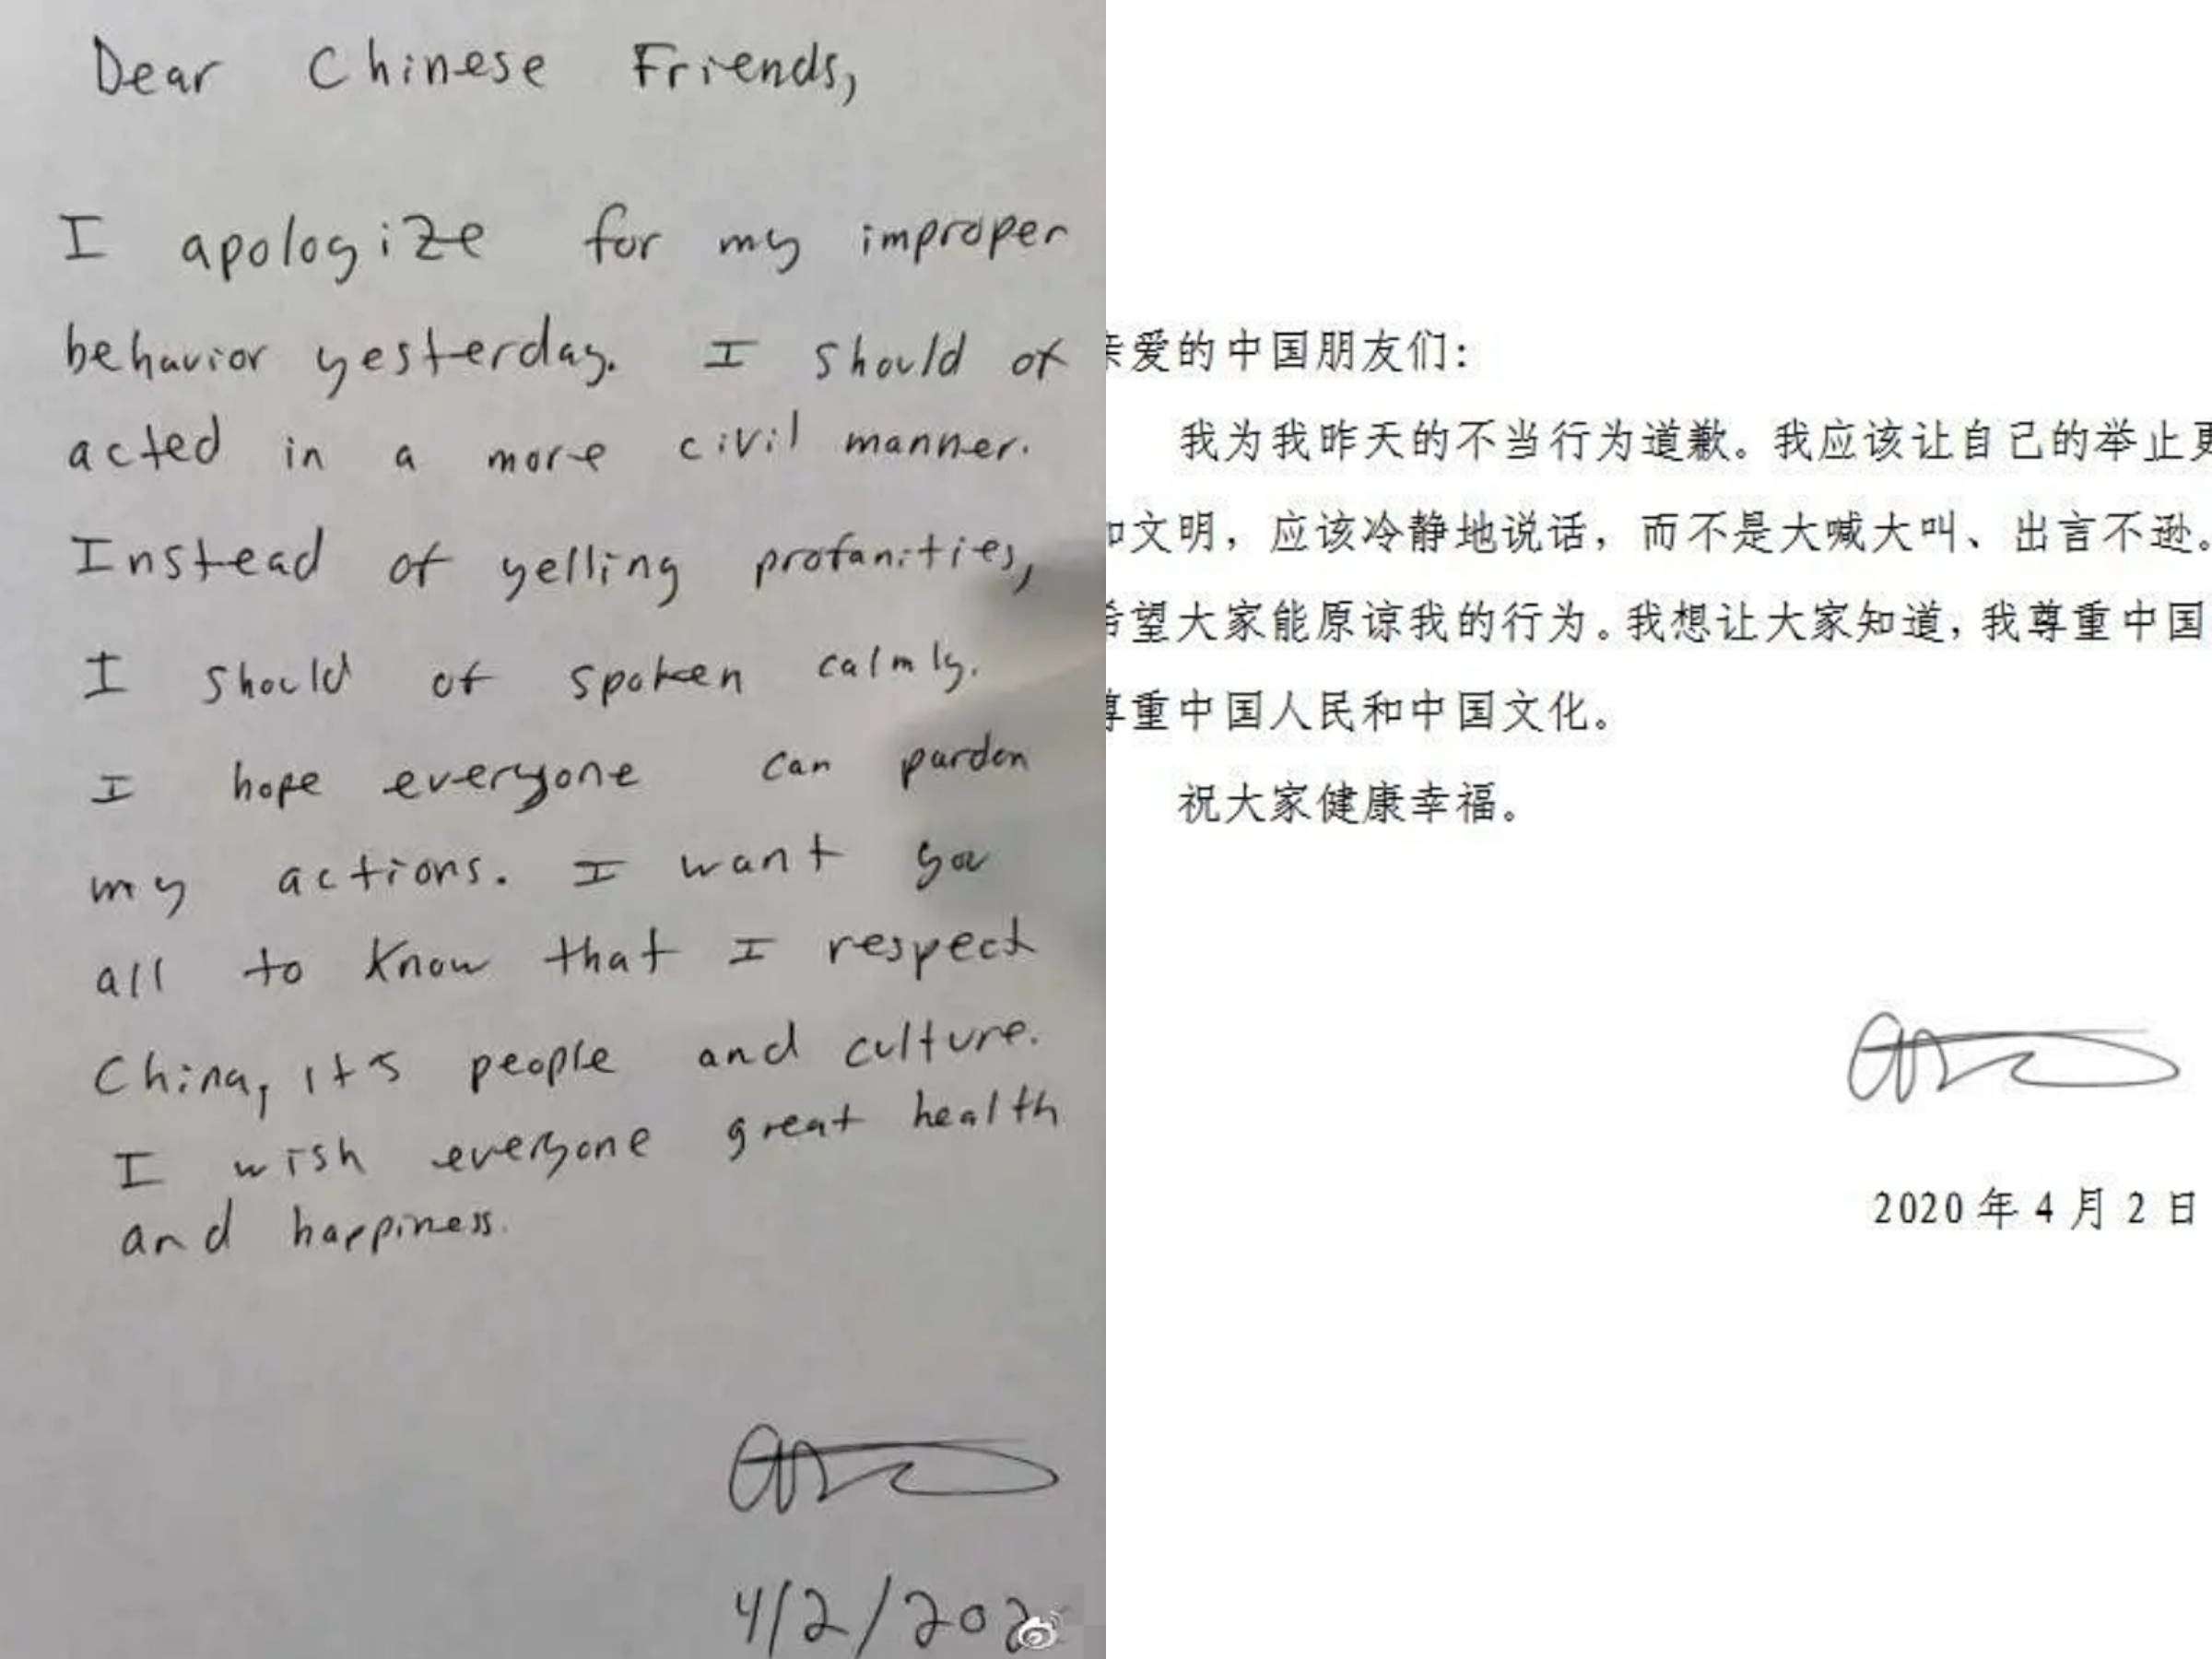 Dear Chinese Friends,
I apologize for my improper
behavior yesterday. I should of
acted in a more civil manner.
Instead of yelling profanities,
I should of spoken calmly.
I hope everyone can pardon
my actions. I want you
all to know that I respect
China, it's people and culture.
I wish everyone great health
and happiness.
4/2/202
亲爱的中国朋友们：
我为我昨天的不当行为道歉。我应该让自己的举止更
加文明，应该冷静地说话，而不是大喊大叫、出言不逊。
希望大家能原谅我的行为。我想让大家知道，我尊重中国，
尊重中国人民和中国文化。
祝大家健康幸福。
2020年4月2日